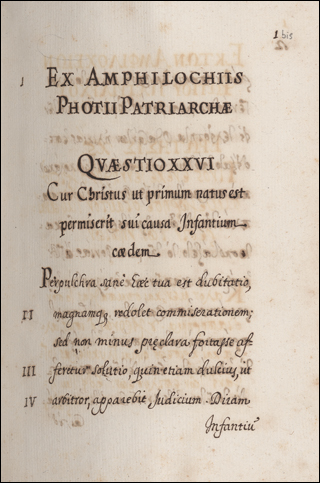 1 bis
I EX AMPHILOCHIIS
PHOTII PATRIARCHÆ
QVÆSTIO XXVI
Cur Christus ut primum natus est
permiserit sui causa Infantium
cædem
Perpulchra sanè hæc tua est dubitatio,
II magnāmq; redolet commiserationem;
sed non minus pręclara fortasse af-
III feretur solutio, quin etiam dulcius, ut
IV arbitror, apparebit Judicium. Diram
Infantiū